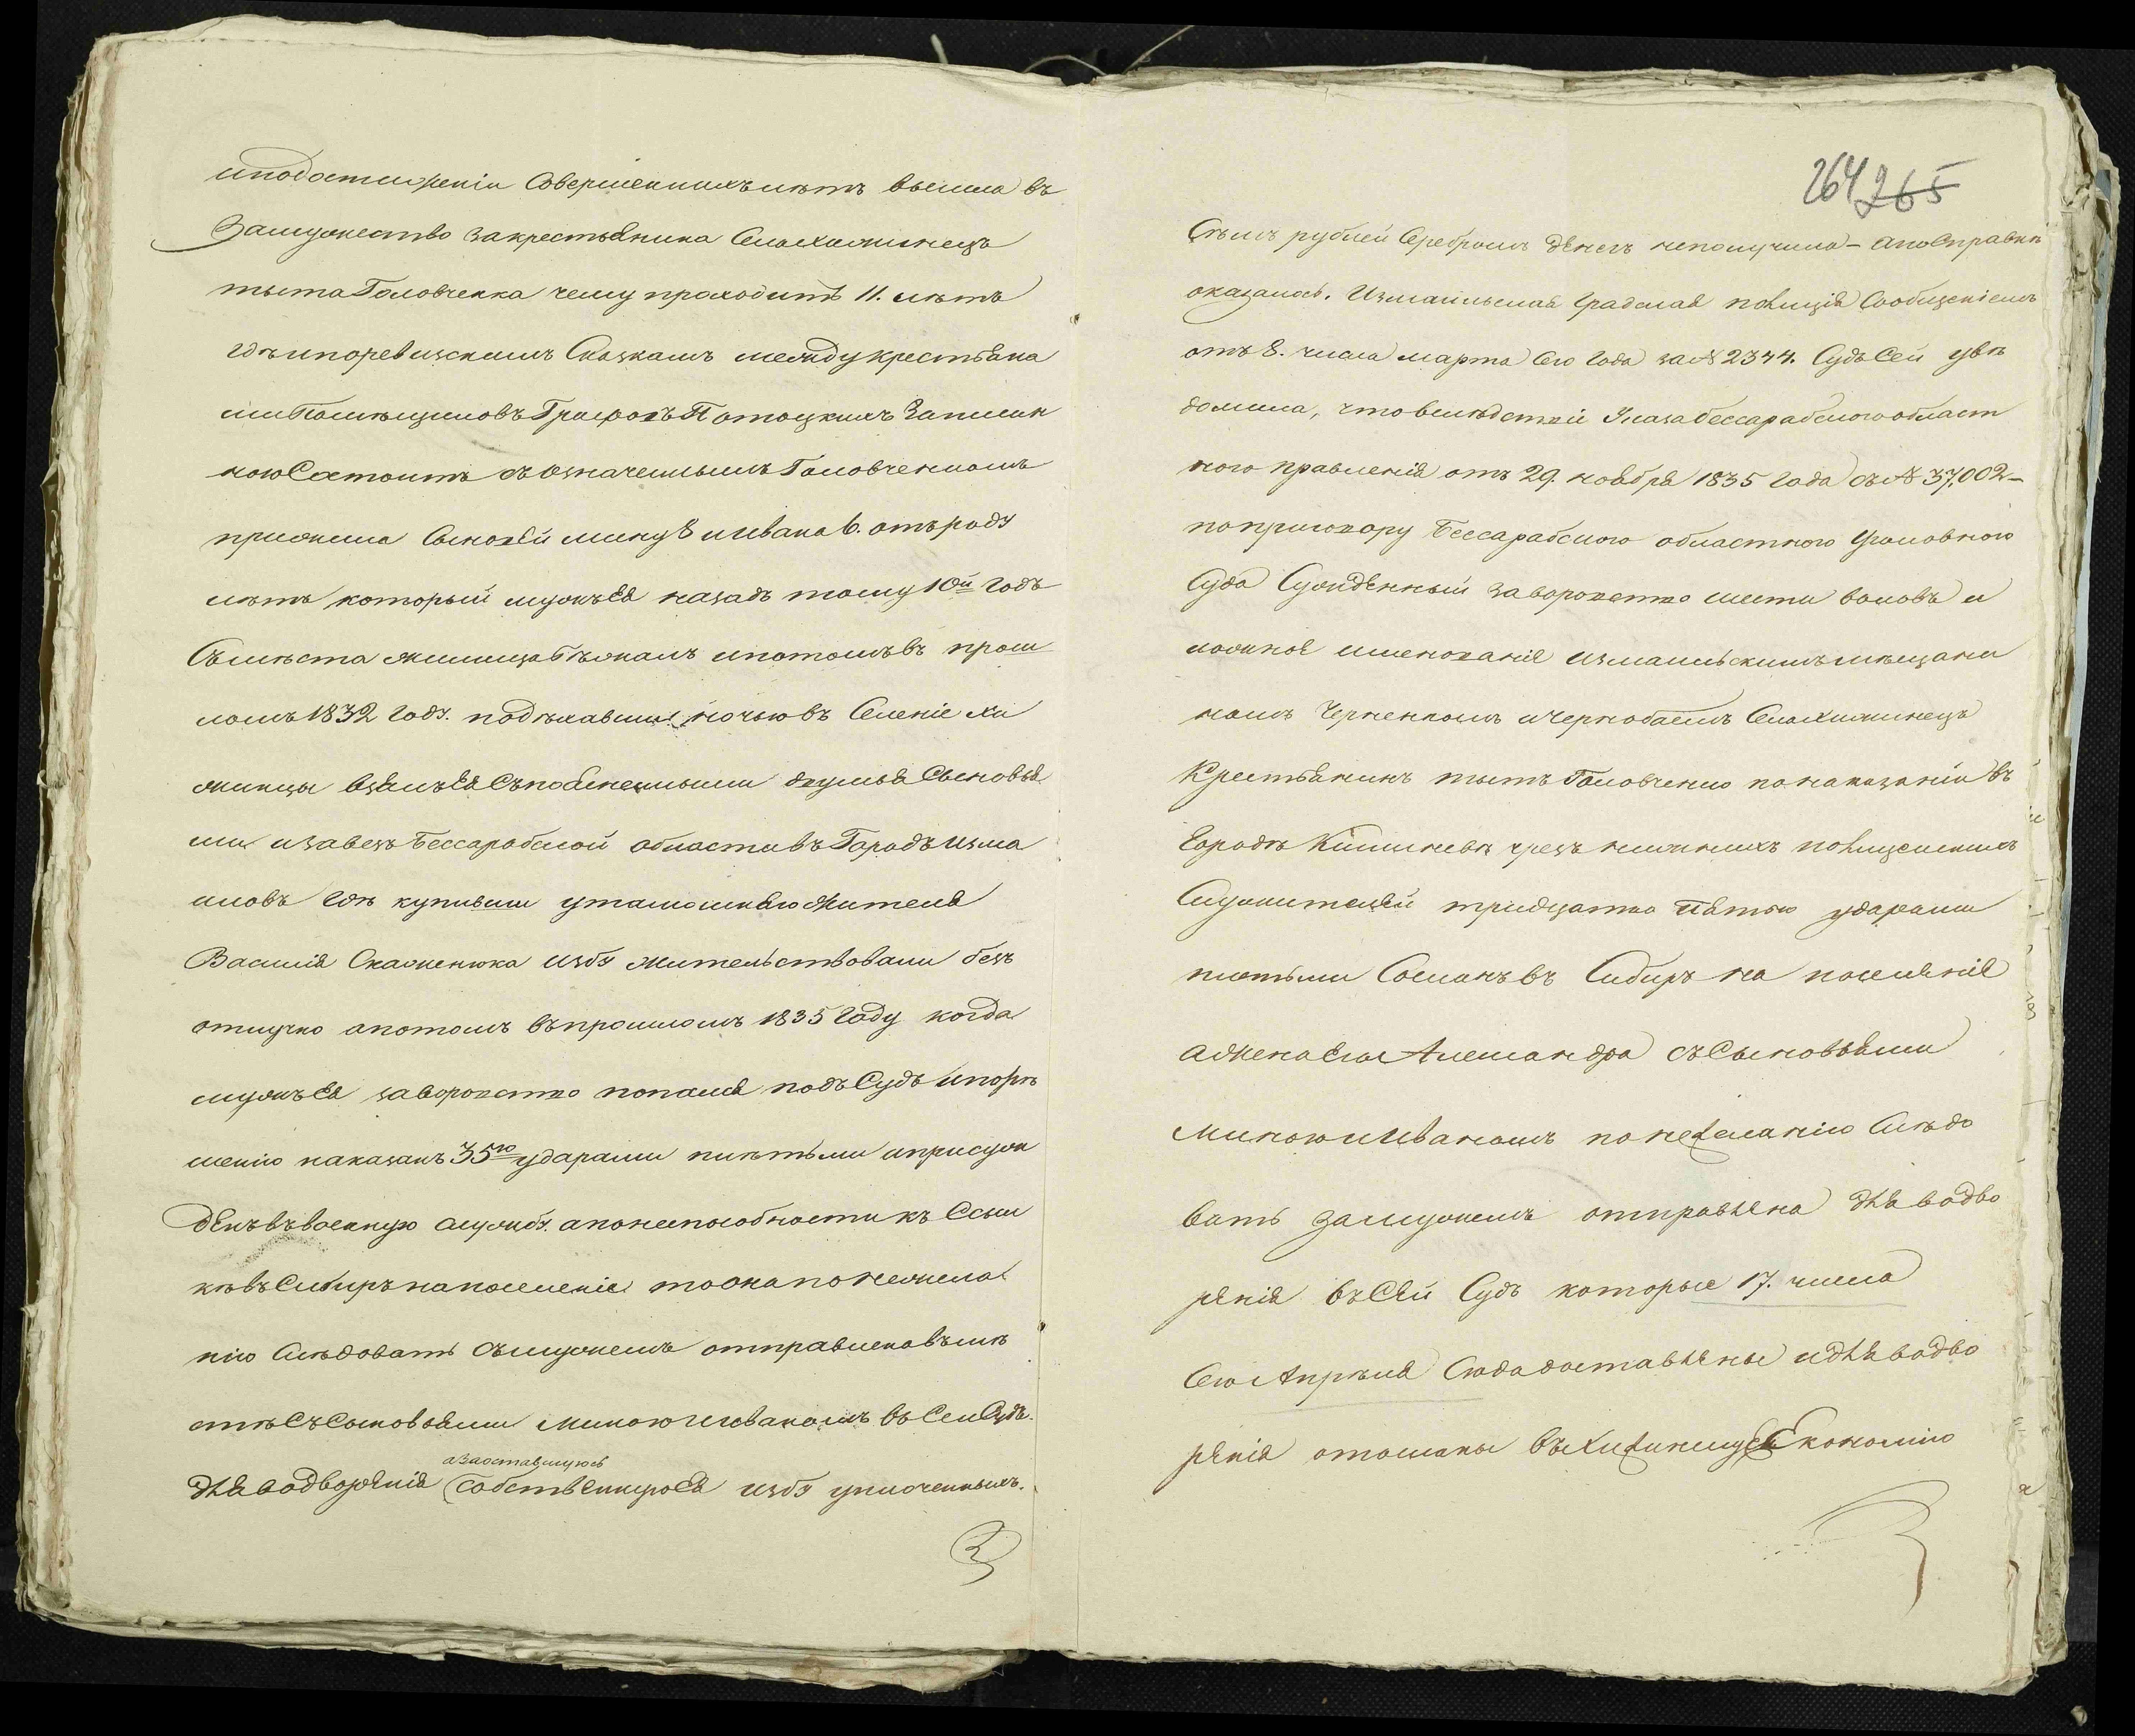 и по достиженіи Совершенныхъ лѣтъ вышла въ
Замужество за крестьянина Села Химинецъ
Тыта Головченка чему проходитъ 11. лѣтъ
гдѣ и по ревизскимъ Сказкамъ между крестьяна
ми Помѣщиковъ Графовъ Потоцкихъ Записан
ною Состоитъ съ означеннымъ Головченкомъ
прижила Сыновей Мину 8 и Ивана 6. отъ роду
лѣтъ который мужъ Ея назадъ тому 10й годъ
Съ мѣста жилища бѣжалъ и потомъ въ прош
ломъ 1832 году. подъѣхавши ночью въ Селеніе Хи
жинцы взялъ Ея Съ поясненными двумья Сыновья
ми и завезъ Бессарабской области въ Городъ Изма
иловъ гдѣ купивши у тамошняго Жителя
Василія Скаженюка избу жительствовали безъ
отлучно а потомъ въ прошломъ 1835 году когда
мужъ Ея за воровство попался подъ Судъ и по рѣ
шенію наказанъ 35ю ударами плѣтьми и присуж
денъ въ военную службу а по неспособности къ Ссыл
кѣ въ Сибиръ на поселеніе то она по нежела
нію Слѣдовать съ мужемъ отправлена вмѣ
стѣ Съ Сыновьями Миною и Иваномъ въ Сей Судъ
а за оставшуюсь
для водворенія Собственную Ея избу уплоченныхъ.
264 265
Съмъ рублей Серебромъ денегъ неполучила – а по Справкѣ
оказалось. Измаильская Градская полиція Сообщеніемъ
отъ 8. числа марта Сего Года за № 2344. Судъ Сей увѣ
домила, что вслѣдствіи Указа бессарабского област
ного правленія отъ 29. ноября 1835 Года съ № 37,002 –
по приговору Бессарабского областного уголовного
Суда Сужденный за воровство шести воловъ и
ложное именованіе измаильскимъ мѣщани
номъ Черненкомъ и Чернобаемъ Села Химинецъ
Крестьянинъ Тытъ Головченко по наказаніи въ
Городѣ Кишиневѣ чрезъ нижнихъ полицейскихъ
Служителей тридцатью пятью ударами
плѣтьми Сосланъ въ Сибиръ на поселеніе
а жена Его Александра съ Сыновьями
Миною и Иваномъ по нежеланію Слѣдо
вать за мужемъ отправлена для водво
ренія въ Сей Судъ которые 17. числа
Сего Апрѣля Сюда доставлены и для водво
ренія отосланы въ Хижинскую Економію